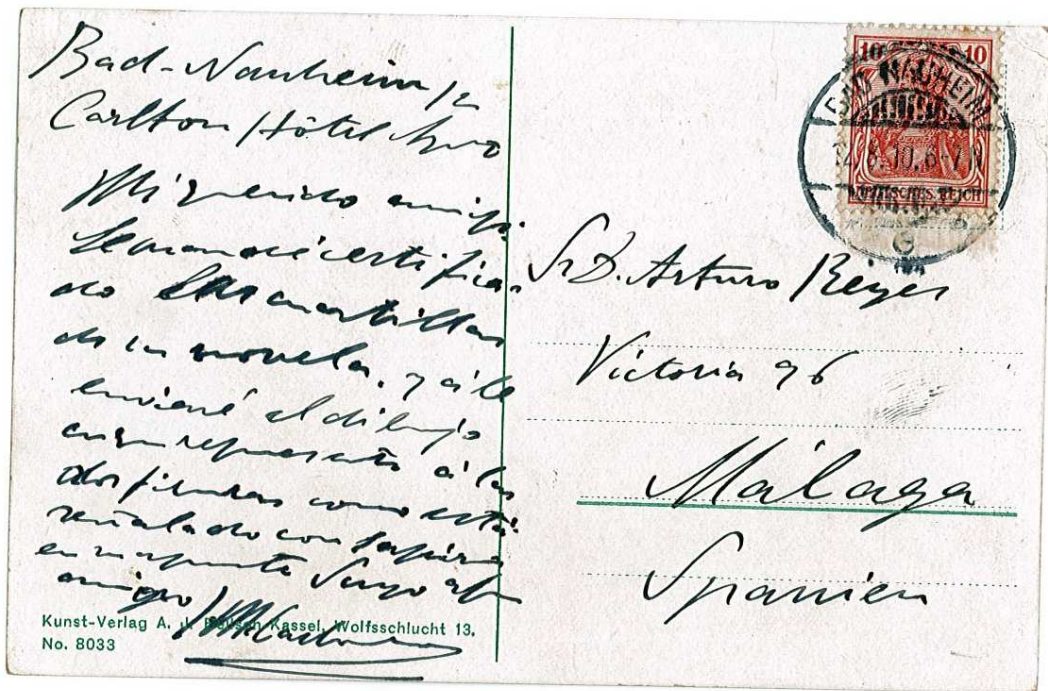 Bad-Nauheim
Carlton Hôtel
Mi querido amigo:
Le mandé certifica-
do las cuartillas
de su novela. y a le
envieré el dibujo
en que represento á las
dos figuras como está
señalado con
en su Suyo
amigo
Kunst-Verlag A. J. Kassel, Wolfsschlucht 13.
No. 8033
10 10
BAD NAUHEIM
.8.10.6-7N
DEUTSCHES REICH
Sr D. Arturo Reyes
Victoria 96
Málaga
Spanien